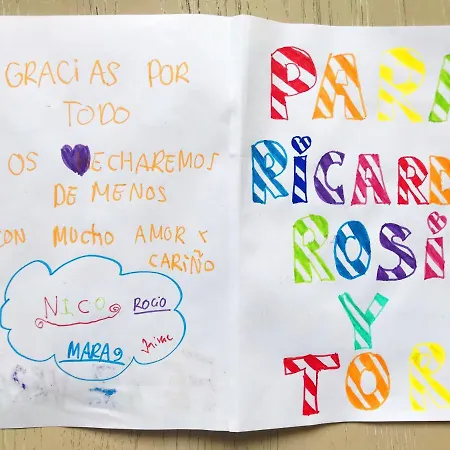 GRACIAS POR
TODO
OS ECHAREMOS
DE MENOS
CON MUCHO AMOR Y
CARIÑO
NICO ROCIO
MARA
PARA
RICARD
ROSI
Y
TOR